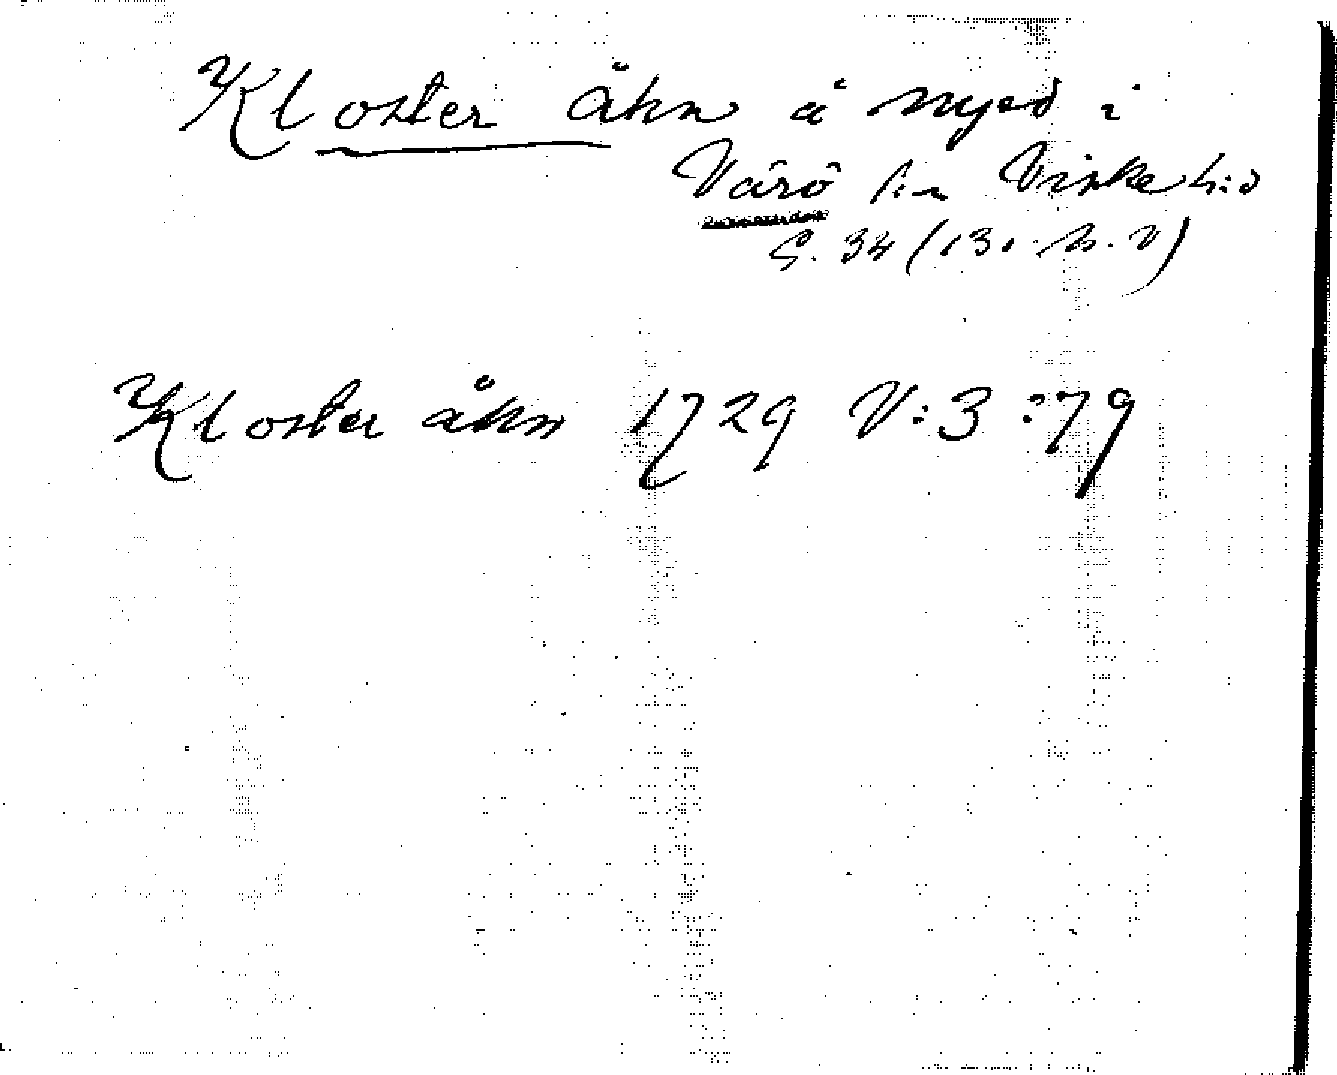 Kloster åhn å nyed i
Värö sn Viske hd
S. 34 (130. h. v)
Kloster åhn 1729 V:3:79